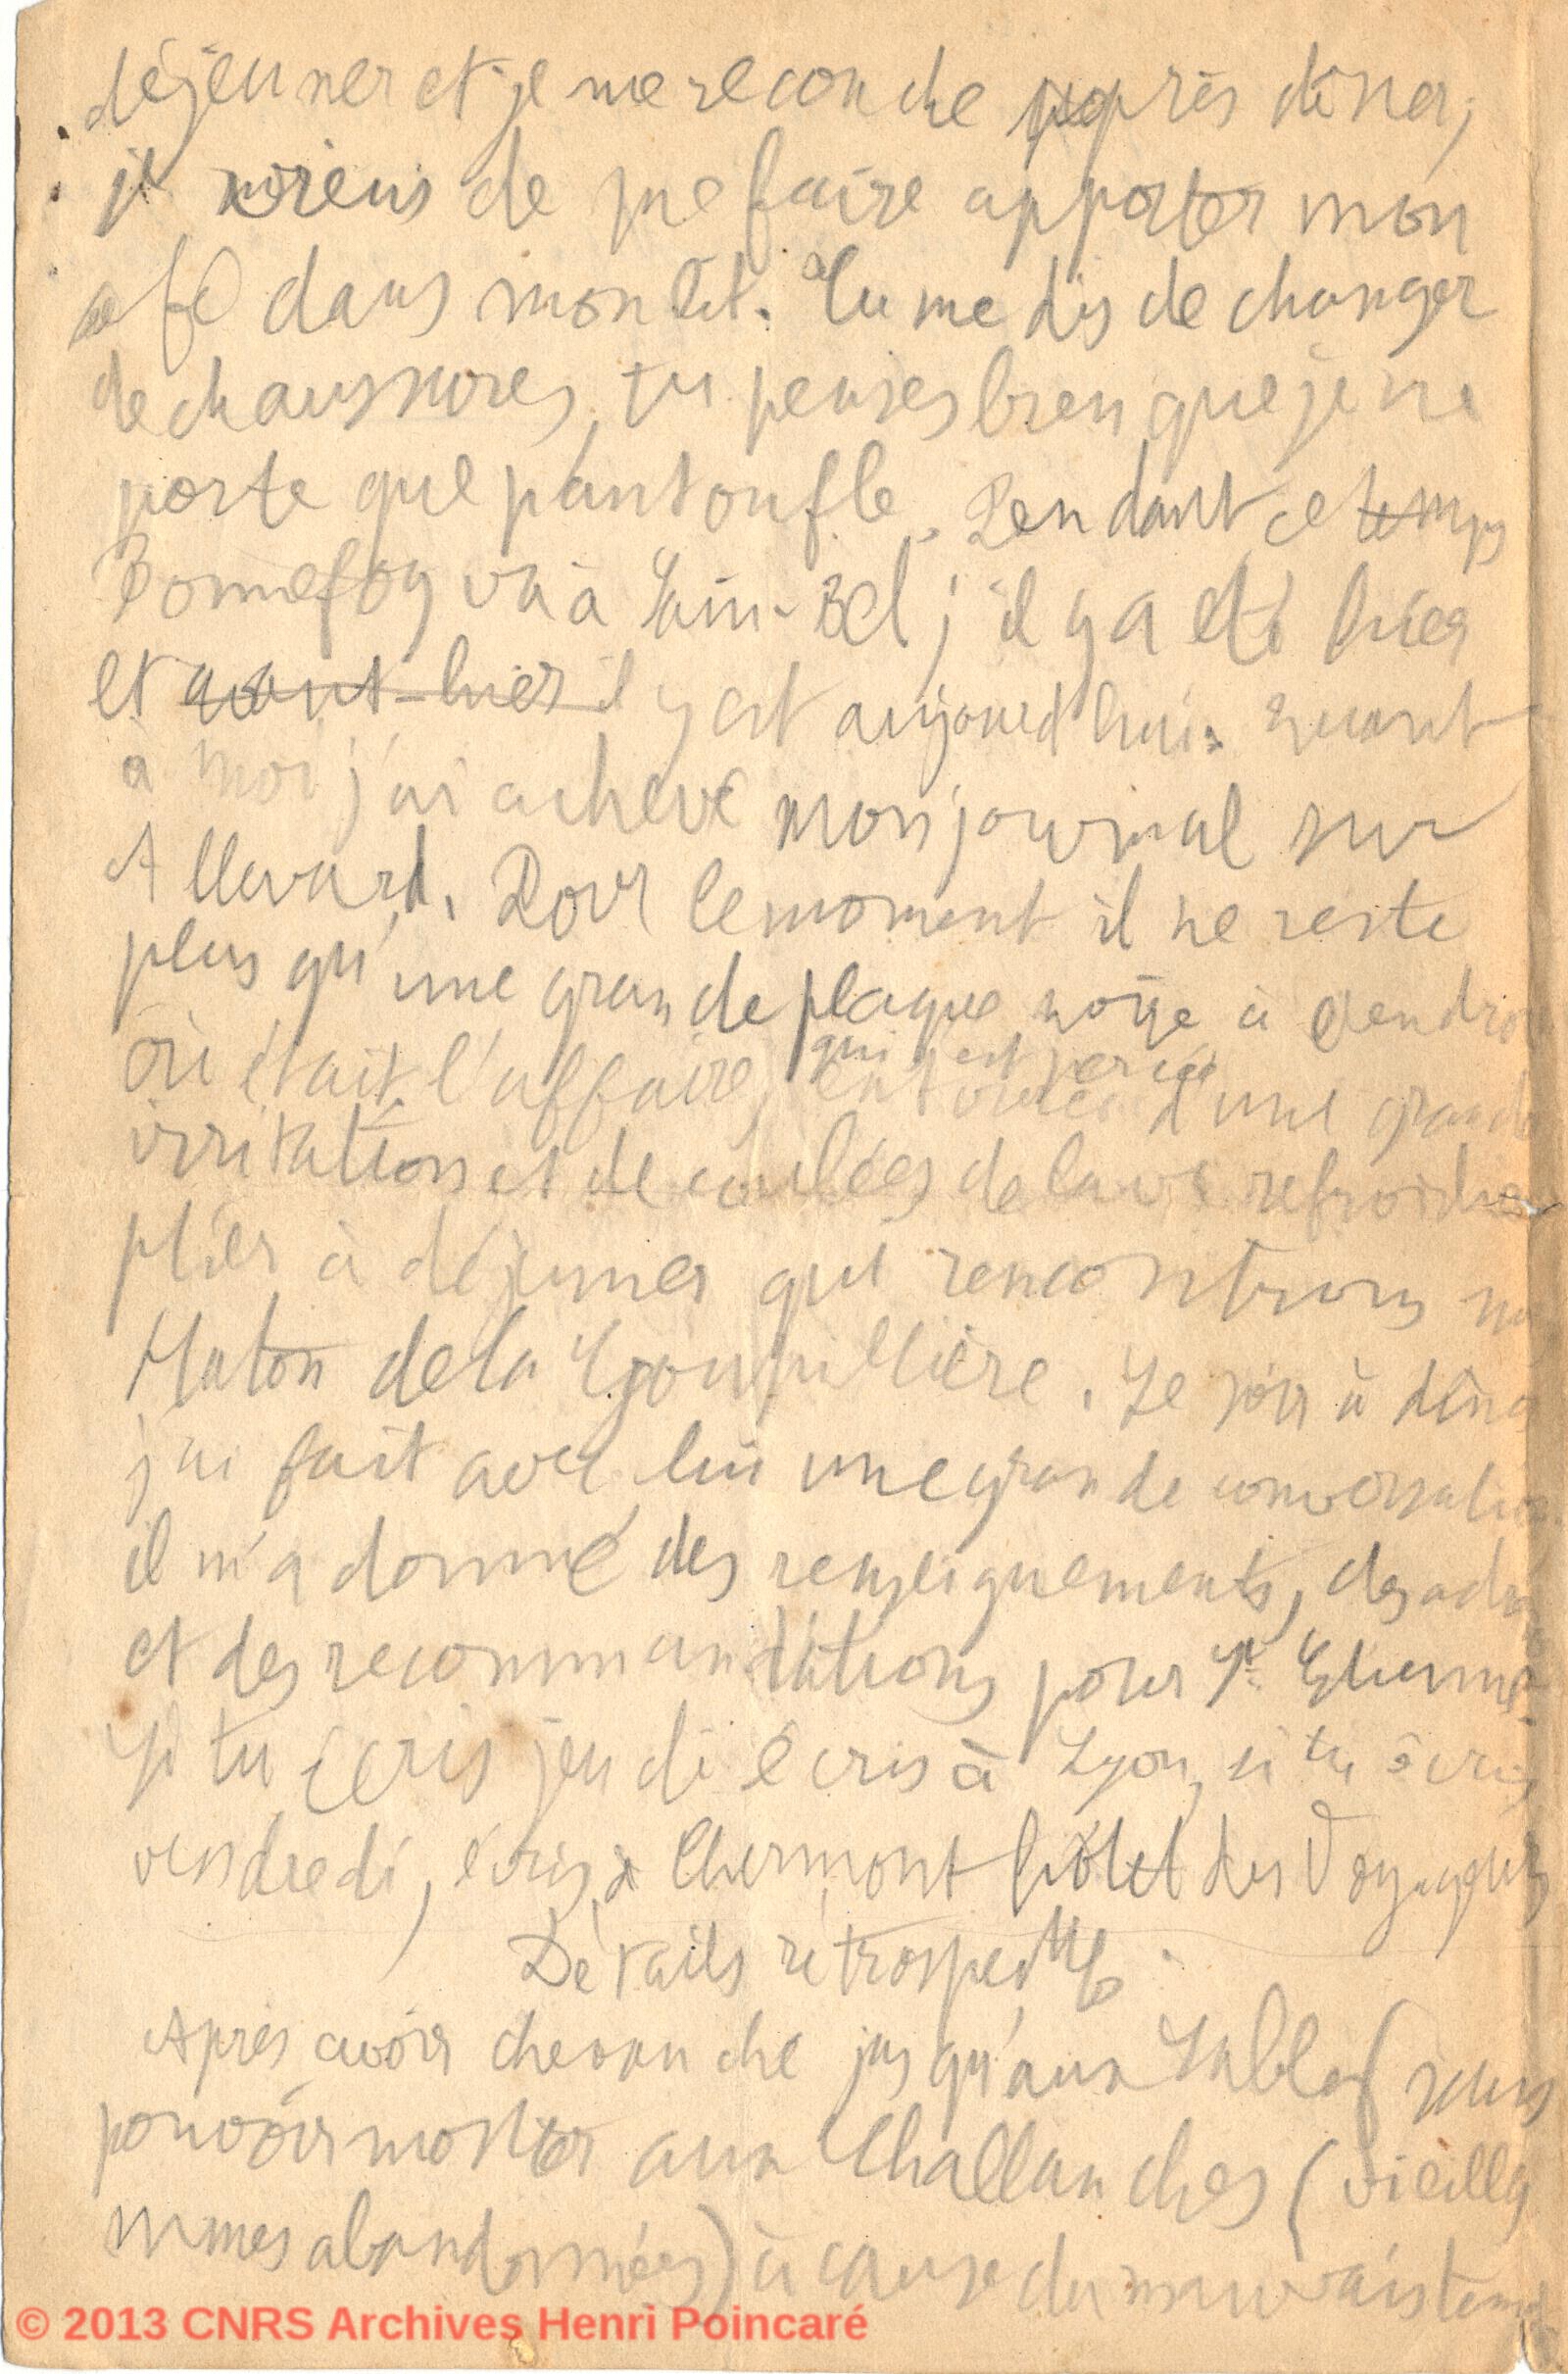 déjeuner et je me recouche après dîner;
je viens de me faire apporter mon
café dans mon lit. Tu me dis de changer
de chaussures, tu penses bien que je ne
porte que pantoufle. Pendant ce temps
Bonnefoy va à Sain-Bel; il y a été hier
et avant-hier il y est aujourd'hui. Quant
à moi j'ai achevé mon journal sur
Allevard. Pour le moment il ne reste
plus qu'une grande plaque noire à l'endroit
où était l'affaire, qui s'est percée
entourée d'une grande
irritation et de coulées de lave refroidies
Hier à déjeuner qui rencontrons nous
Haton de la Goupillière. Le soir à dîner
j'ai fait avec lui une grande conversation
il m'a donné des renseignements, des adr
et des recommandations pour St Etienne.
Si tu écris jeudi écris à Lyon, si tu écris
vendredi, écris à Clermont hôtel des Voyageurs
Détails rétrospectifs.
Après avoir chevauché jusqu'aux Sables sans
pouvoir monter aux Challanches (vieilles
mines abandonnées) à cause du mauvais temps
© 2013 CNRS Archives Henri Poincaré